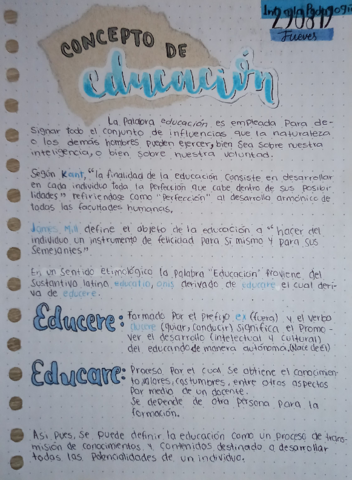 Ing a la Pedagogía
290819
Jueves
CONCEPTO DE
educación
La palabra educación es empleada para de-
signar todo el conjunto de influencias que la naturaleza
o los demás hombres pueden ejercer, bien sea sobre nuestra
inteligencia, o bien sobre nuestra voluntad.
Según Kant, "la finalidad de la educación consiste en desarrollar
en cada individuo toda la perfección que cabe dentro de sus posibi-
lidades" refiriendose como "perfección" al desarrollo armónico de
todas las facultades humanas.
James Mill define el objeto de la educación a "hacer del
individuo un instrumento de felicidad para si mismo y para sus
semejantes"
En un sentido etimológico la palabra "Educación" proviene del
sustantivo latino, educatio, onis derivado de educare el cual deri-
va de educere.
Educere: Formado por el prefijo ex (fuera) y el verbo
ducere (guiar, conducir) significa el promo-
ver el desarrollo (intelectual y cultural)
del educando de manera autónoma. (Nace de él)
Educare: Proceso por el cual se obtiene el conocimien-
to, valores, costumbres, entre otros aspectos
por medio de un docente.
Se depende de otra persona para la
formación.
Asi pues, se puede definir la educación como un proceso de trans-
misión de conocimientos y contenidos destinado a desarrollar
todas las potencialidades de un individuo.